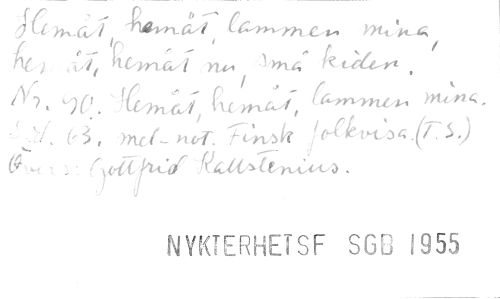 Hemåt, hemåt, lammen mina,
hemåt, hemåt nu, små kiden.
Nr. 90. Hemåt, hemåt, lammen mina.
S. 63. mel-not. Finsk folkvisa. (T.S.)
Övers: Gottfrid Kallstenius.
NYKTERHETSF SGB 1955